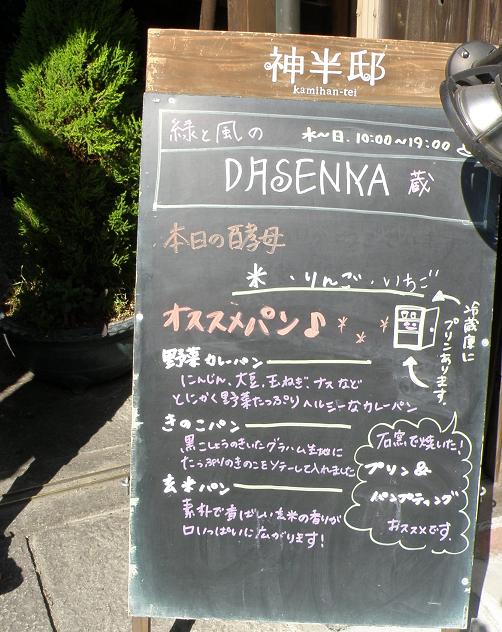 神半邸
kamihan-tei
緑と風の
水～日. 10:00～19:00
DASENKA 蔵
本日の酵母
米・りんご・いちご
オススメパン♪
冷蔵庫に
プリンあります。
野菜カレーパン
にんじん、大豆、玉ねぎ、ナスなど
とにかく野菜たっぷりヘルシーなカレーパン
きのこパン
黒こしょうのきいたグラハム生地に
たっぷりのきのこをソテーして入れました
玄米パン
素朴で香ばしい玄米の香りが
口いっぱいに広がります!
石窯で焼いた!
プリン&
パンプティング
おススメです